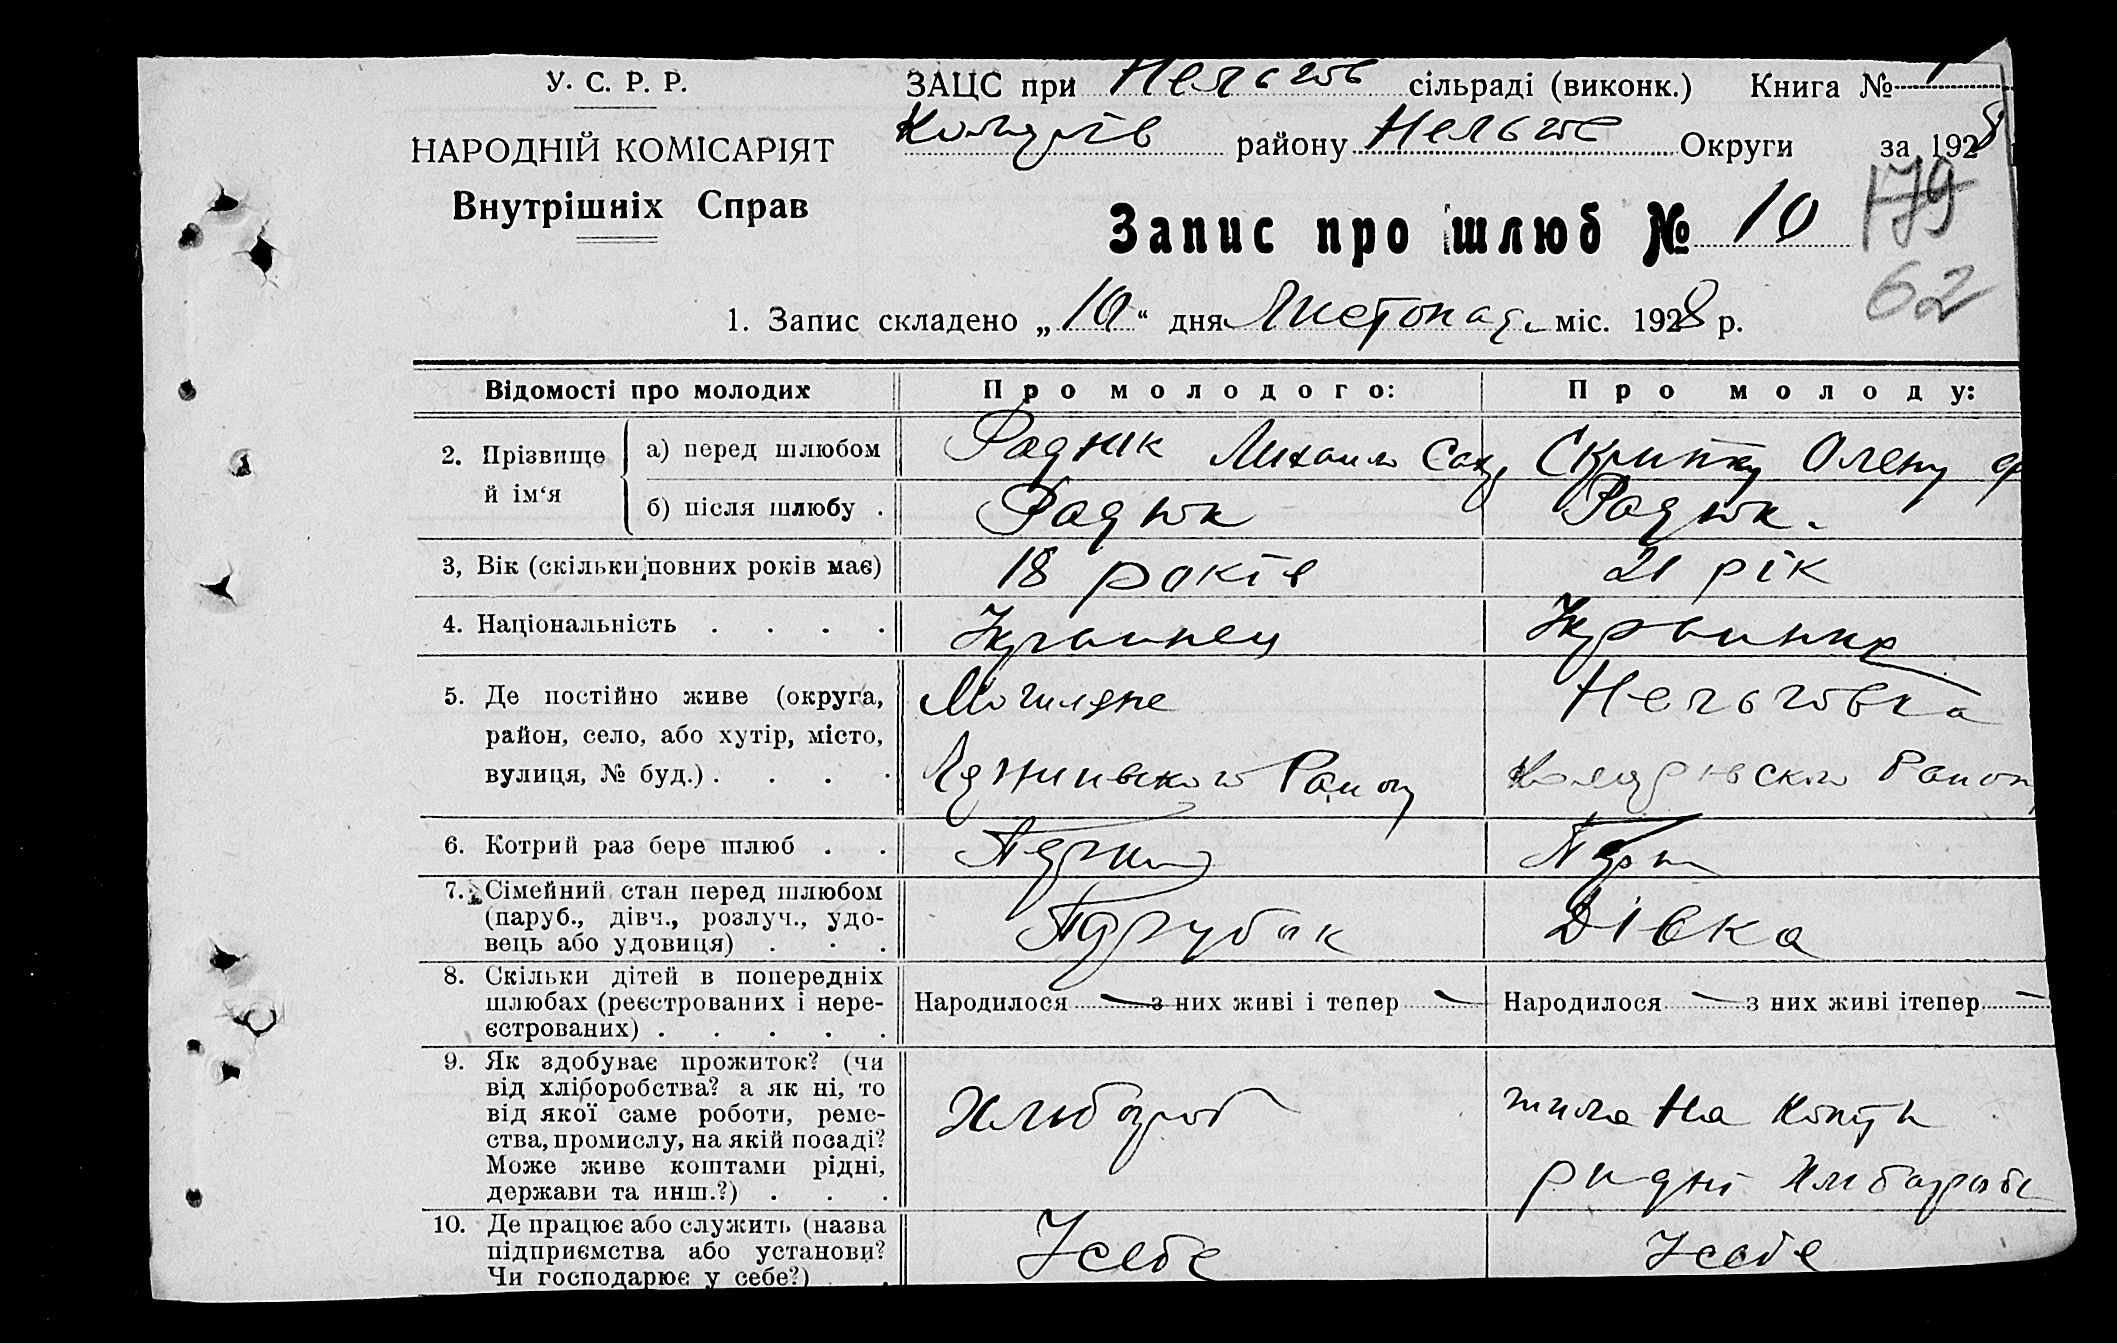 У. С. Р. Р.
НАРОДНІЙ КОМІСАРІЯТ
Внутрішніх Справ
ЗАЦС при сільраді (виконк.) Книга №
району Округи за 1928
Запис про шлюб № 10
179
62
1. Запис складено „10“ дня Листопада міс. 1928 р.
Відомості про молодих Про молодого: Про молоду:
2. Прізвище й ім‘я
а) перед шлюбом Радюк Михаило Скрипку Олену
б) після шлюбу . Радюк Радюк.
3, Вік (скільки повних років має) 18 років 21 рік
4. Національність . . . . Украинец Украинка
5. Де постійно живе (округа, Нельговка
район, село, або хутір, місто,
вулиця, № буд.) . . . . Району Району
6. Котрий раз бере шлюб . .
7. Сімейний стан перед шлюбом
(паруб., дівч., розлуч., удо- Парубок Дівка
вець або удовиця) . . .
8. Скільки дітей в попередніх
шлюбах (реєстрованих і нере- Народилося — з них живі і тепер — Народилося — з них живі ітепер —
єстрованих) . . . . .
9. Як здобуває прожиток? (чи
від хліборобства? а як ні, то
від якої саме роботи, реме- Хлибороб жила на
ства, промислу, на якій посаді?
Може живе коштами рідні,
держави та инш.?) . . . ридні
10. Де працює або служить (назва
підприємства або установи? У себе У себе
Чи господарює у себе?) .